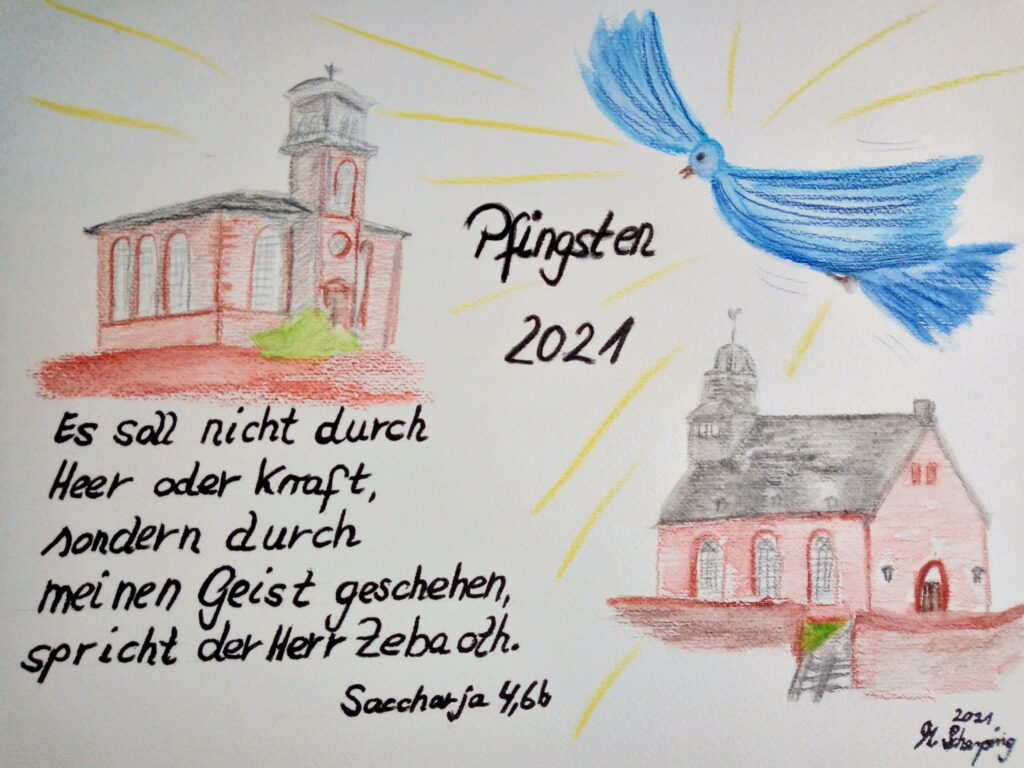 Pfingsten
2021
Es soll nicht durch
Heer oder Kraft,
sondern durch
meinen Geist geschehen,
spricht der Herr Zebaoth.
Saccharja 4,6b
2021